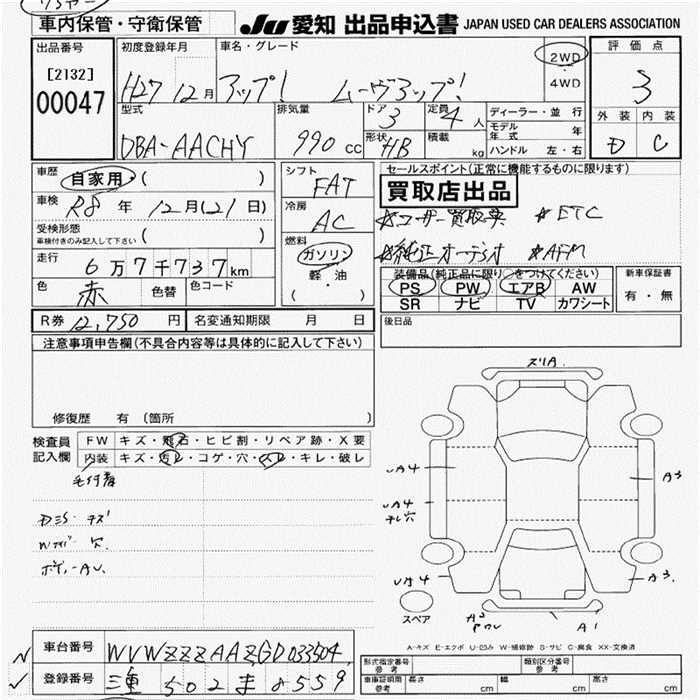 車内保管・守衛保管
JU 愛知 出品申込書 JAPAN USED CAR DEALERS ASSOCIATION
出品番号
[2132]
00047
初度登録年月
H27 12月
車名・グレード
アップ! ムーヴアップ!
2WD
・
4WD
評価点
3
外装 内装
D C
型式
DBA-AACHY
排気量
990 cc
ドア
3
形状
HB
定員
4 人
積載
kg
ディーラー・並行
モデル年式 年
ハンドル 左・右
車歴
自家用・( )
車検 R8年 12月(21日)
受検形態
車検付きのみ記入して下さい ( )
走行
6万7千737km
色
赤
色替
色コード
シフト
FAT
冷房
AC
燃料
ガソリン
軽・油
( )
セールスポイント(正常に機能するものに限ります)
買取店出品
☆ユーザー買取車 ☆ETC
☆純正オーディオ ☆AFM
装備品(純正品に限り○をつけてください)
PS PW エアB AW
SR ナビ TV カワシート
新車保証書
有・無
R券 12,750円
名変通知期限 月 日
後日品
注意事項申告欄(不具合内容等は具体的に記入して下さい)
修復歴 有 (箇所 )
検査員
記入欄
FW キズ・飛石・ヒビ割・リペア跡・X要
内装 キズ・汚レ・コゲ・穴・スレ・キレ・破レ
毛付着
キズ
穴
スリA
UA4
UA4
UA4
A3
A3
A3
A1
スペア
A-キズ E-エクボ U-凹み W-補修跡 S-サビ C-腐食 XX-交換済
車台番号 WVWZZZAAZGD033504
登録番号 三重 502 ま ・559
形式指定番号
参考
類別区分番号
参考
車庫証明用
参考
長さ cm
幅 cm
高さ cm